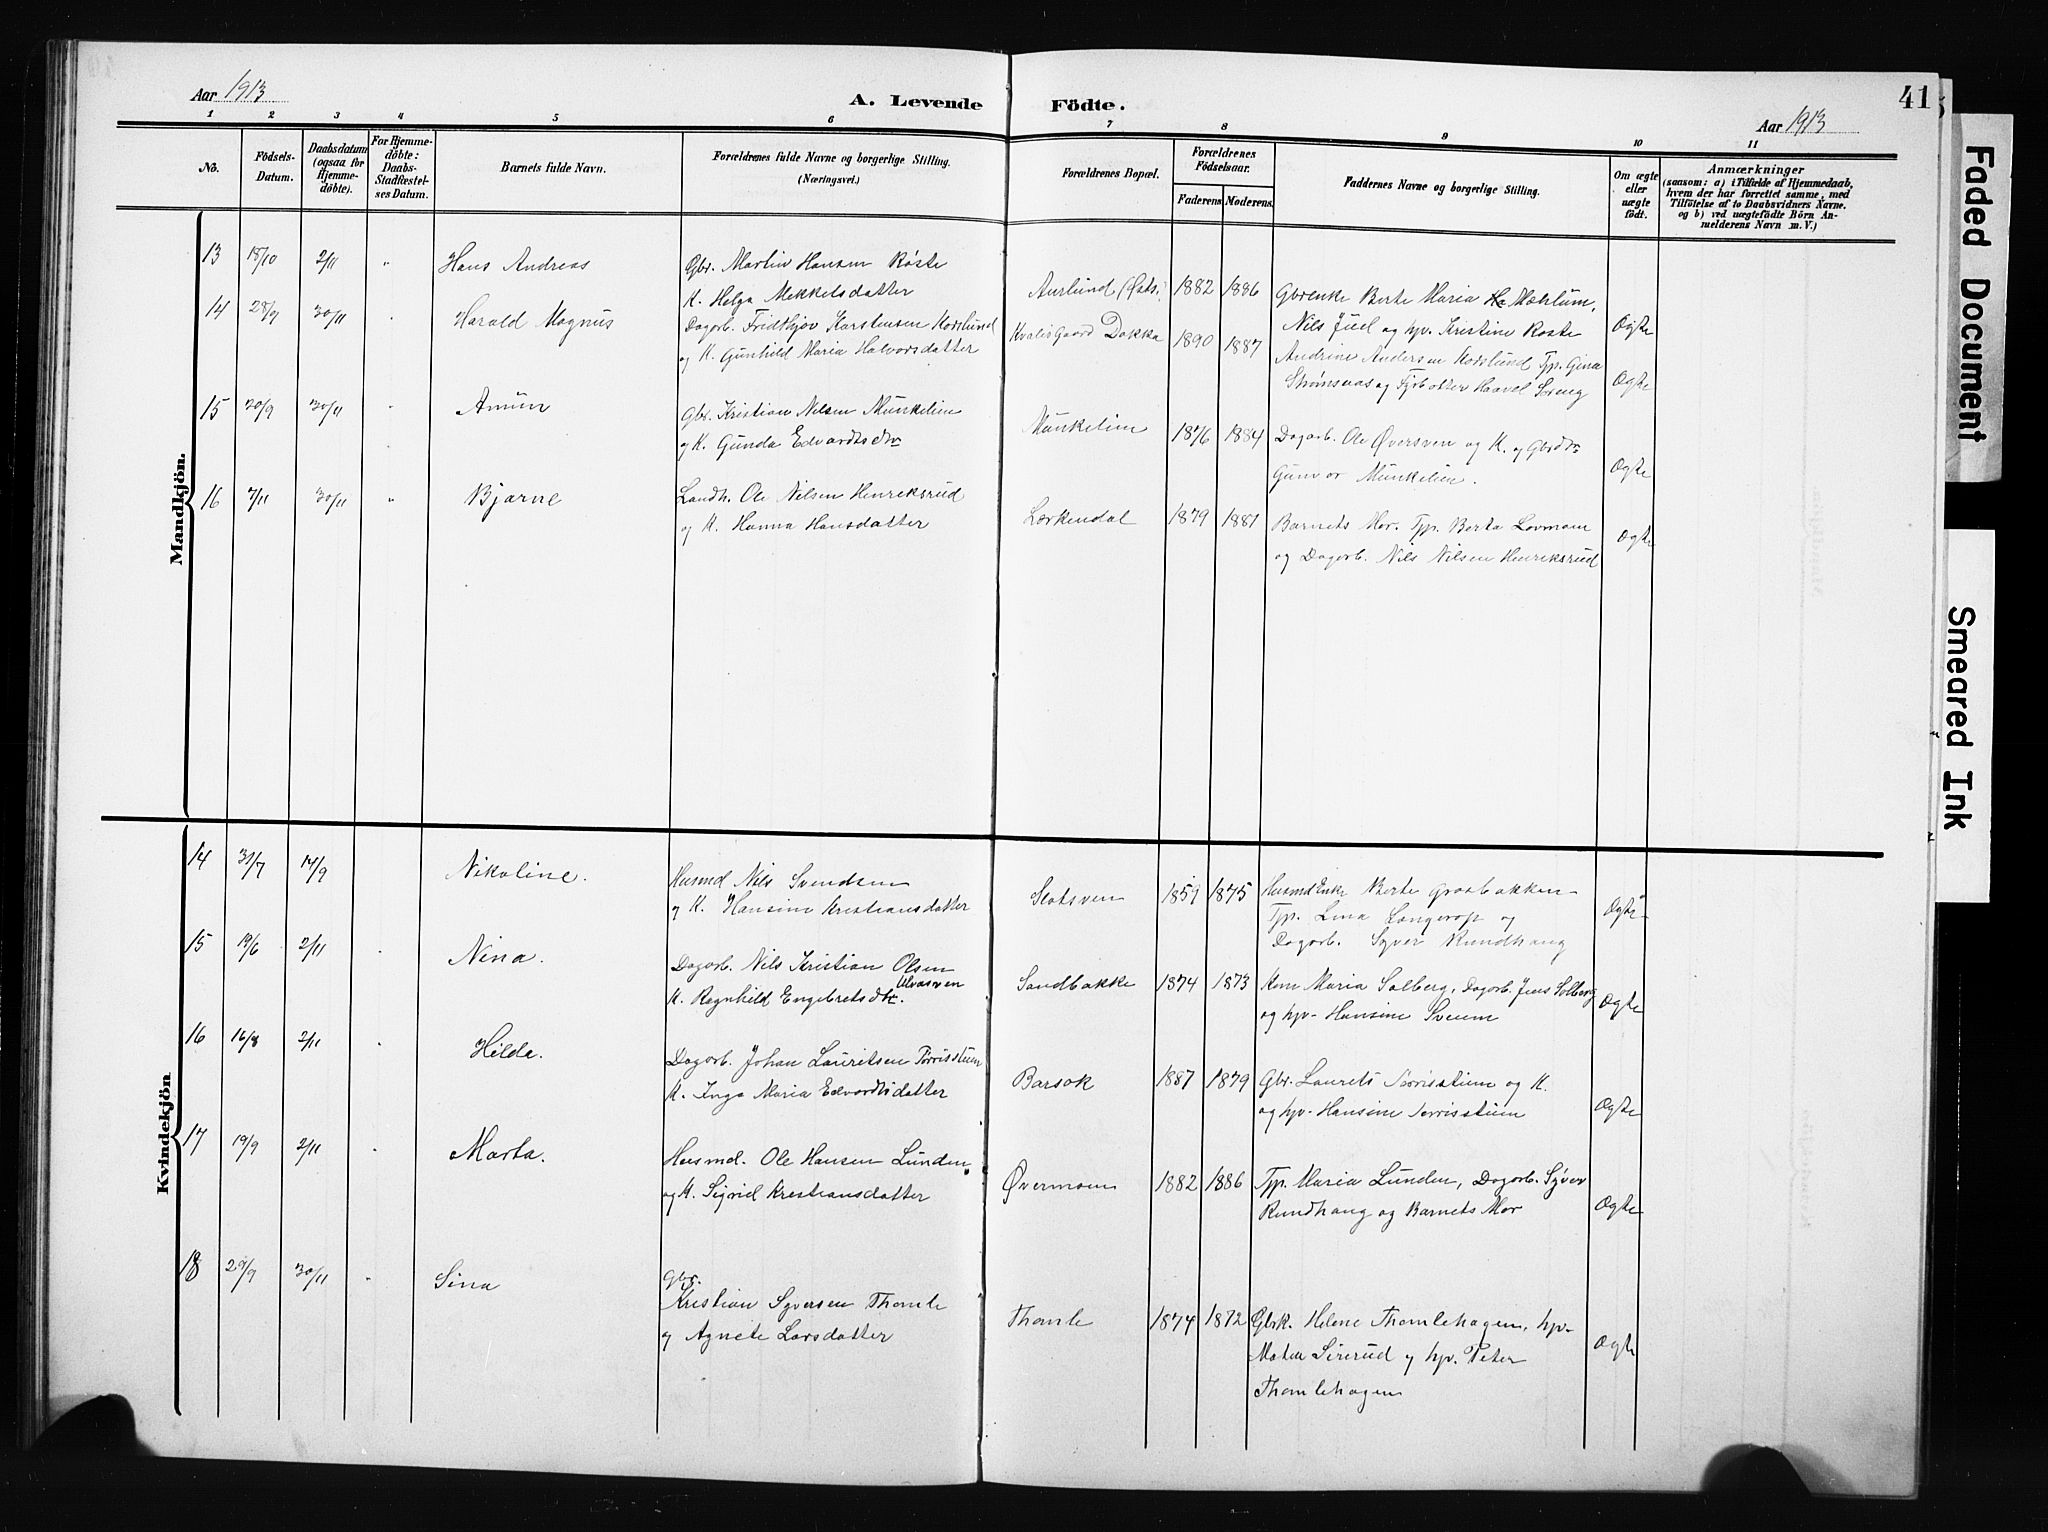 Aar 1913
A. Levende Födte.
Aar 1913
41
1 2 3 4 5 6 7 8 9 10 11
No.
Födsels-
Datum.
Daabsdatum
(ogsaa for
Hjemme-
döbte).
For Hjemme-
döbte:
Daabs-
Stadfæstel-
ses Datum.
Barnets fulde Navn.
Forældrenes fulde Navne og borgerlige Stilling.
(Næringsvei.)
Forældrenes Bopæl.
Forældrenes
Födselsaar.
Faderens Moderens
Faddernes Navne og borgerlige Stilling.
Om ægte
eller
uægte
født.
Anmærkninger
(saasom: a) i Tilfælde af Hjemmedaab,
hvem der har forrettet samme, med
Tilföielse af to Daabsvidners Navne.
og b) ved uægtefödte Börn An-
melderens Navn m. V.)
Mandkjön.
13 18/10 2/11 " Hans Andreas
Gbr. Martin Hansen Röste
K. Helga Mekkelsdatter
Aurlund (Østs.) 1882 1886
Gbrenke Berte Maria Mæhlum,
Nils Juel og hv. Kristine Röste
Ægte
14 28/9 30/11 " Harald Magnus
Dagarb. Fridthjov Karstensen Kodslund
og K. Gunhild Maria Halvorsdatter
Kvalesgaard Dokka 1890 1887
Andrine Andersen Kodslund Tp. Gina
Strømsaas og Havel Søreng
Ægte
15 30/9 30/11 " Amün
Gbr. Kristian Nilsen Munkelien
og K. Gunda Edvardtsdtr
Munkelien 1876 1884
Dagarb. Ole Øversven og K. og Gbrdtr
Gunvor Munkelien.
Ægte
16 7/11 30/11 " Bjarne
Landh. Ole Nilsen Henriksrud
og K. Hanna Hansdatter
Lærkendal 1879 1881
Barnets Mor. Tp. Berta Lovmoen
og Dagarb. Nils Nilsen Henriksrud
Ægte
Kvindekjön
14 31/7 14/9 Nikoline.
Husmd Nils Svendsen
og K. Hansine Kristiansdatter
Slotsven 1859 1875
Husmd Enke Berte Graabakken
Tp. Lina Langerop og
Dagarb. Syver Rundhaug
Ægte
15 19/6 2/11 " Nina.
Dagarb. Nils Kristian Olsen
Ulvasven
K. Ragnhild Engebretsdtr.
Sandbakke 1874 1873
Kone Maria Solberg, Dagarb. Jens Solberg
og hv. Hansine Sveum
Ægte
16 16/8 2/11 " Hilda.
Dagarb. Johan Lauritsen Torrisstuen
K. Inga Maria Edvardtsdatter
Barsok 1887 1879
Gbr. Laurets Torrisstuen og K.
og hv. Hansine Torrisstuen
Ægte
17 19/9 2/11 " Marta.
Husmd. Ole Hansen Lunden
og K. Sigrid Kristiansdatter
Øvermoen 1882 1886
Tp. Maria Lunden, Dagarb. Syver
Rundhaug og Barnets Mor
Ægte
18 29/9 30/11 " Sina
Gbr.
Kristian Syversen Thomle
og Agnete Larsdatter
Thomle 1874 1872
Gbrk. Helene Thomlehagen, hv.
Mathea Sirerud og hv. Peter
Thomlehagen
Ægte
Faded Document
Smeared Ink